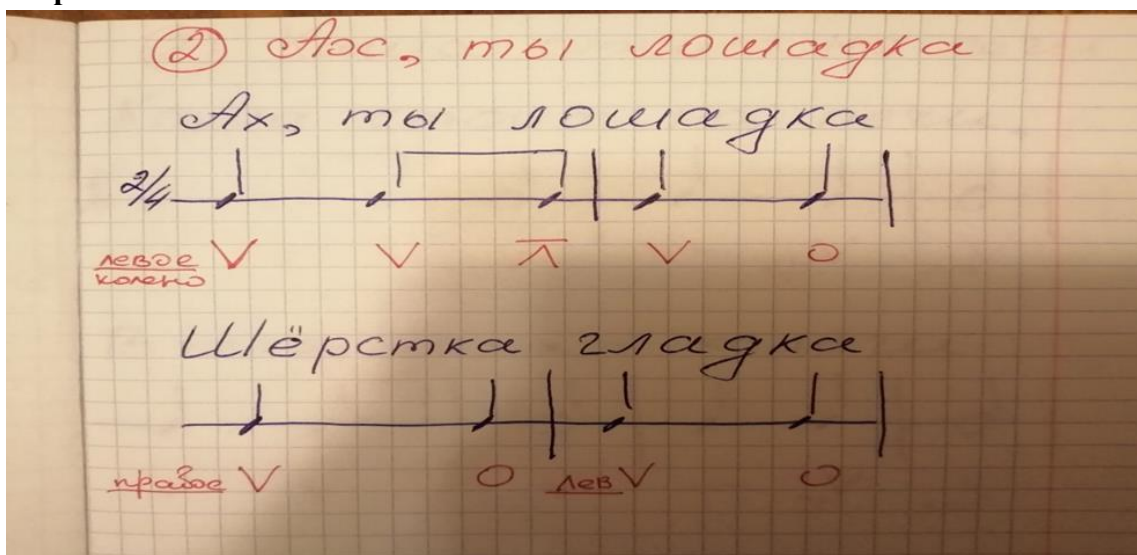 ② Ах, ты лошадка
Ах, ты лошадка
2/4
левое колено V V V O
Шёрстка гладка
правое V O лев V O